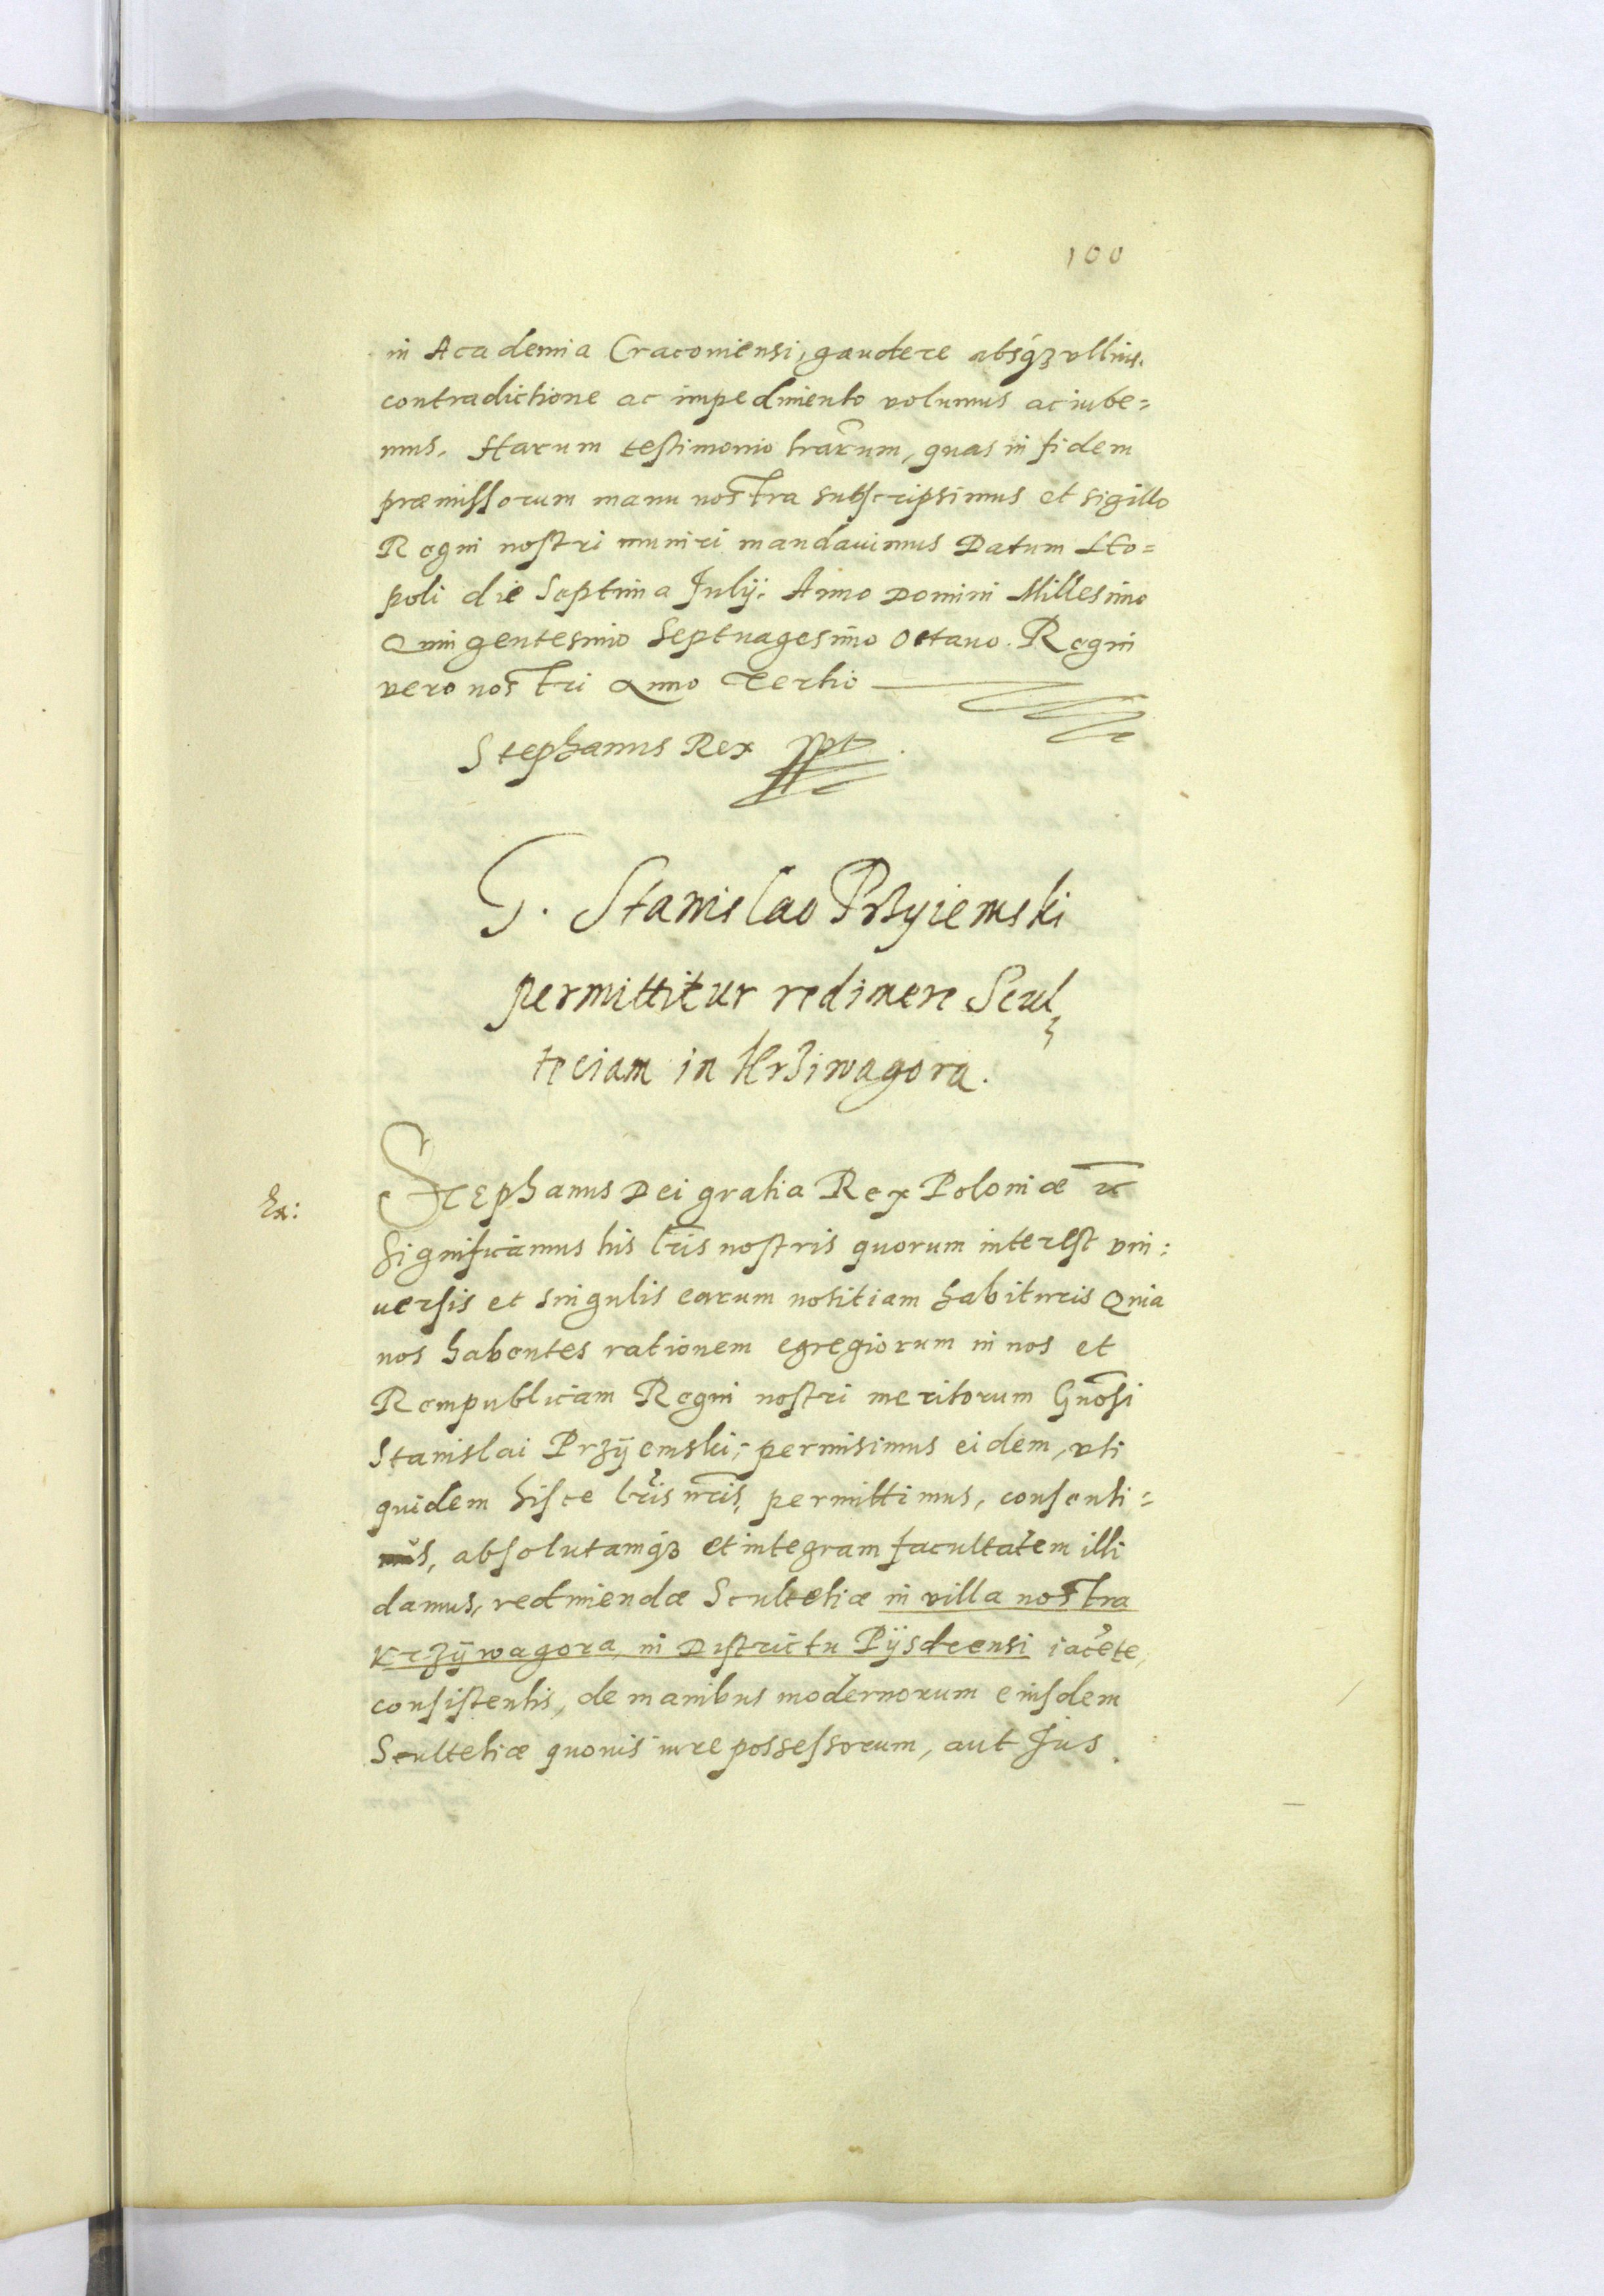 100
in Academia Cracouiensi, gaudere absq3 vllius.
contradictione ac impedimento volumus ac iube=
mus. Harum testimonio lrarum, quas in fidem
præmissorum manu nostra subscripsimus et sigillo
Regni nostri muniri mandauimus Datum Leo=
poli die Septima Julij. Anno Domini Millesimo
Quingentesimo Septuagesimo Octauo. Regni
vero nostri Anno Tertio
Stephanus Rex ppt.
G. Stanislao Przyiemski
permittitur redimere Scul
teciam in Krziwagora.
Ex:
Stephanus Dei gratia Rex Poloniæ &c
Significamus his lris nostris quorum interest vni:
uersis et singulis earum notitiam habituris Quia
nos habentes rationem egregiorum in nos et
Rempublicam Regni nostri meritorum Gnosi
Stanislai Przÿemski, permisimus eidem, vti
quidem hisce lris nris, permittimus, consenti=
mus, absolutamq3 et integram facultatem illi
damus, redimendæ Scultetiæ in villa nostra
Krzÿwagora, in Districtu Pÿsdrensi iacete,
consistentis, de manibus modernorum eiusdem
Scultetiæ quouis iure possessorum, aut Jus